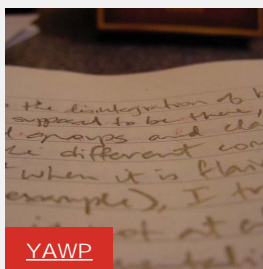 the disintegration of
supposed to be there,
groups and cla
the different com
when it is flair
example), I tr
not at
YAWP